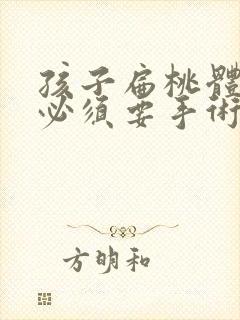 孩子扁桃體
必須要手術
方明和